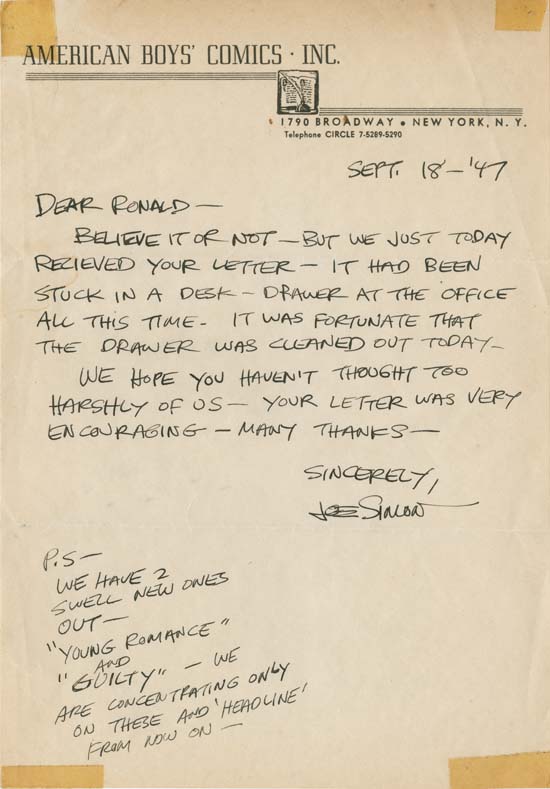 AMERICAN BOYS' COMICS · INC.
1790 BROADWAY • NEW YORK, N. Y.
Telephone CIRCLE 7-5289-5290
SEPT. 18 - '47
DEAR RONALD —
BELIEVE IT OR NOT — BUT WE JUST TODAY
RECIEVED YOUR LETTER — IT HAD BEEN
STUCK IN A DESK - DRAWER AT THE OFFICE
ALL THIS TIME - IT WAS FORTUNATE THAT
THE DRAWER WAS CLEANED OUT TODAY -
WE HOPE YOU HAVEN'T THOUGHT TOO
HARSHLY OF US — YOUR LETTER WAS VERY
ENCOURAGING — MANY THANKS —
SINCERELY,
JOE SIMON
P.S —
WE HAVE 2
SWELL NEW ONES
OUT —
"YOUNG ROMANCE"
AND
"GUILTY" — WE
ARE CONCENTRATING ONLY
ON THESE AND 'HEADLINE'
FROM NOW ON —